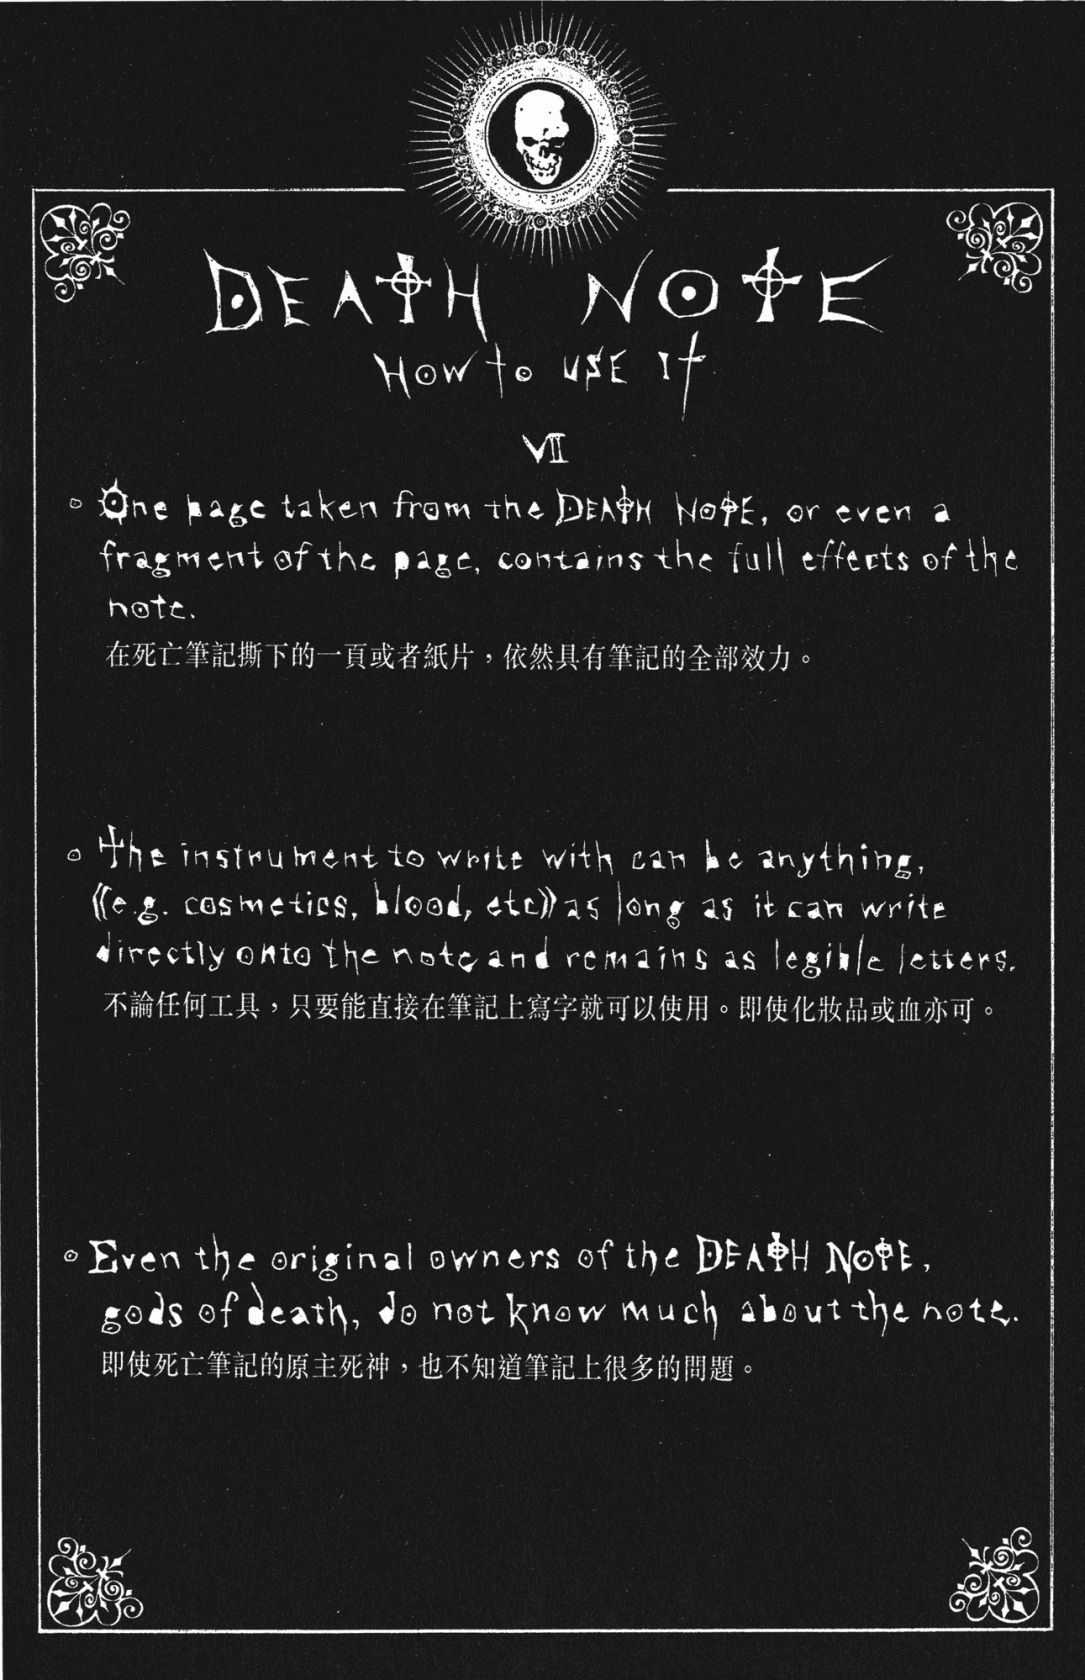 DEATH NOTE
HOW to USE It
VII
One page taken from the DEATH NOTE, or even a
fragment of the page, contains the full effects of the
note.
在死亡筆記撕下的一頁或者紙片，依然具有筆記的全部效力。
The instrument to write with can be anything,
((e.g. cosmetics, blood, etc)) as long as it can write
directly onto the note and remains as legible letters.
不論任何工具，只要能直接在筆記上寫字就可以使用。即使化妝品或血亦可。
Even the original owners of the DEATH NOTE,
gods of death, do not know much about the note.
即使死亡筆記的原主死神，也不知道筆記上很多的問題。